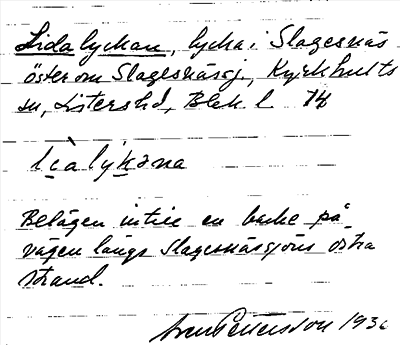 Lidalyckan, lycka i Slagesnäs
öster om Slagesnässj., Kyrkhults
sn, Listers hd, Blek. l. 14
lìalýkəna
Belägen intill en backe på
vägen längs Slagesnässjöns östra
strand.
Sven Petersson 1936